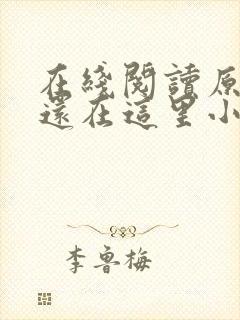 在綫閱讀原
還在這里小
李魯梅